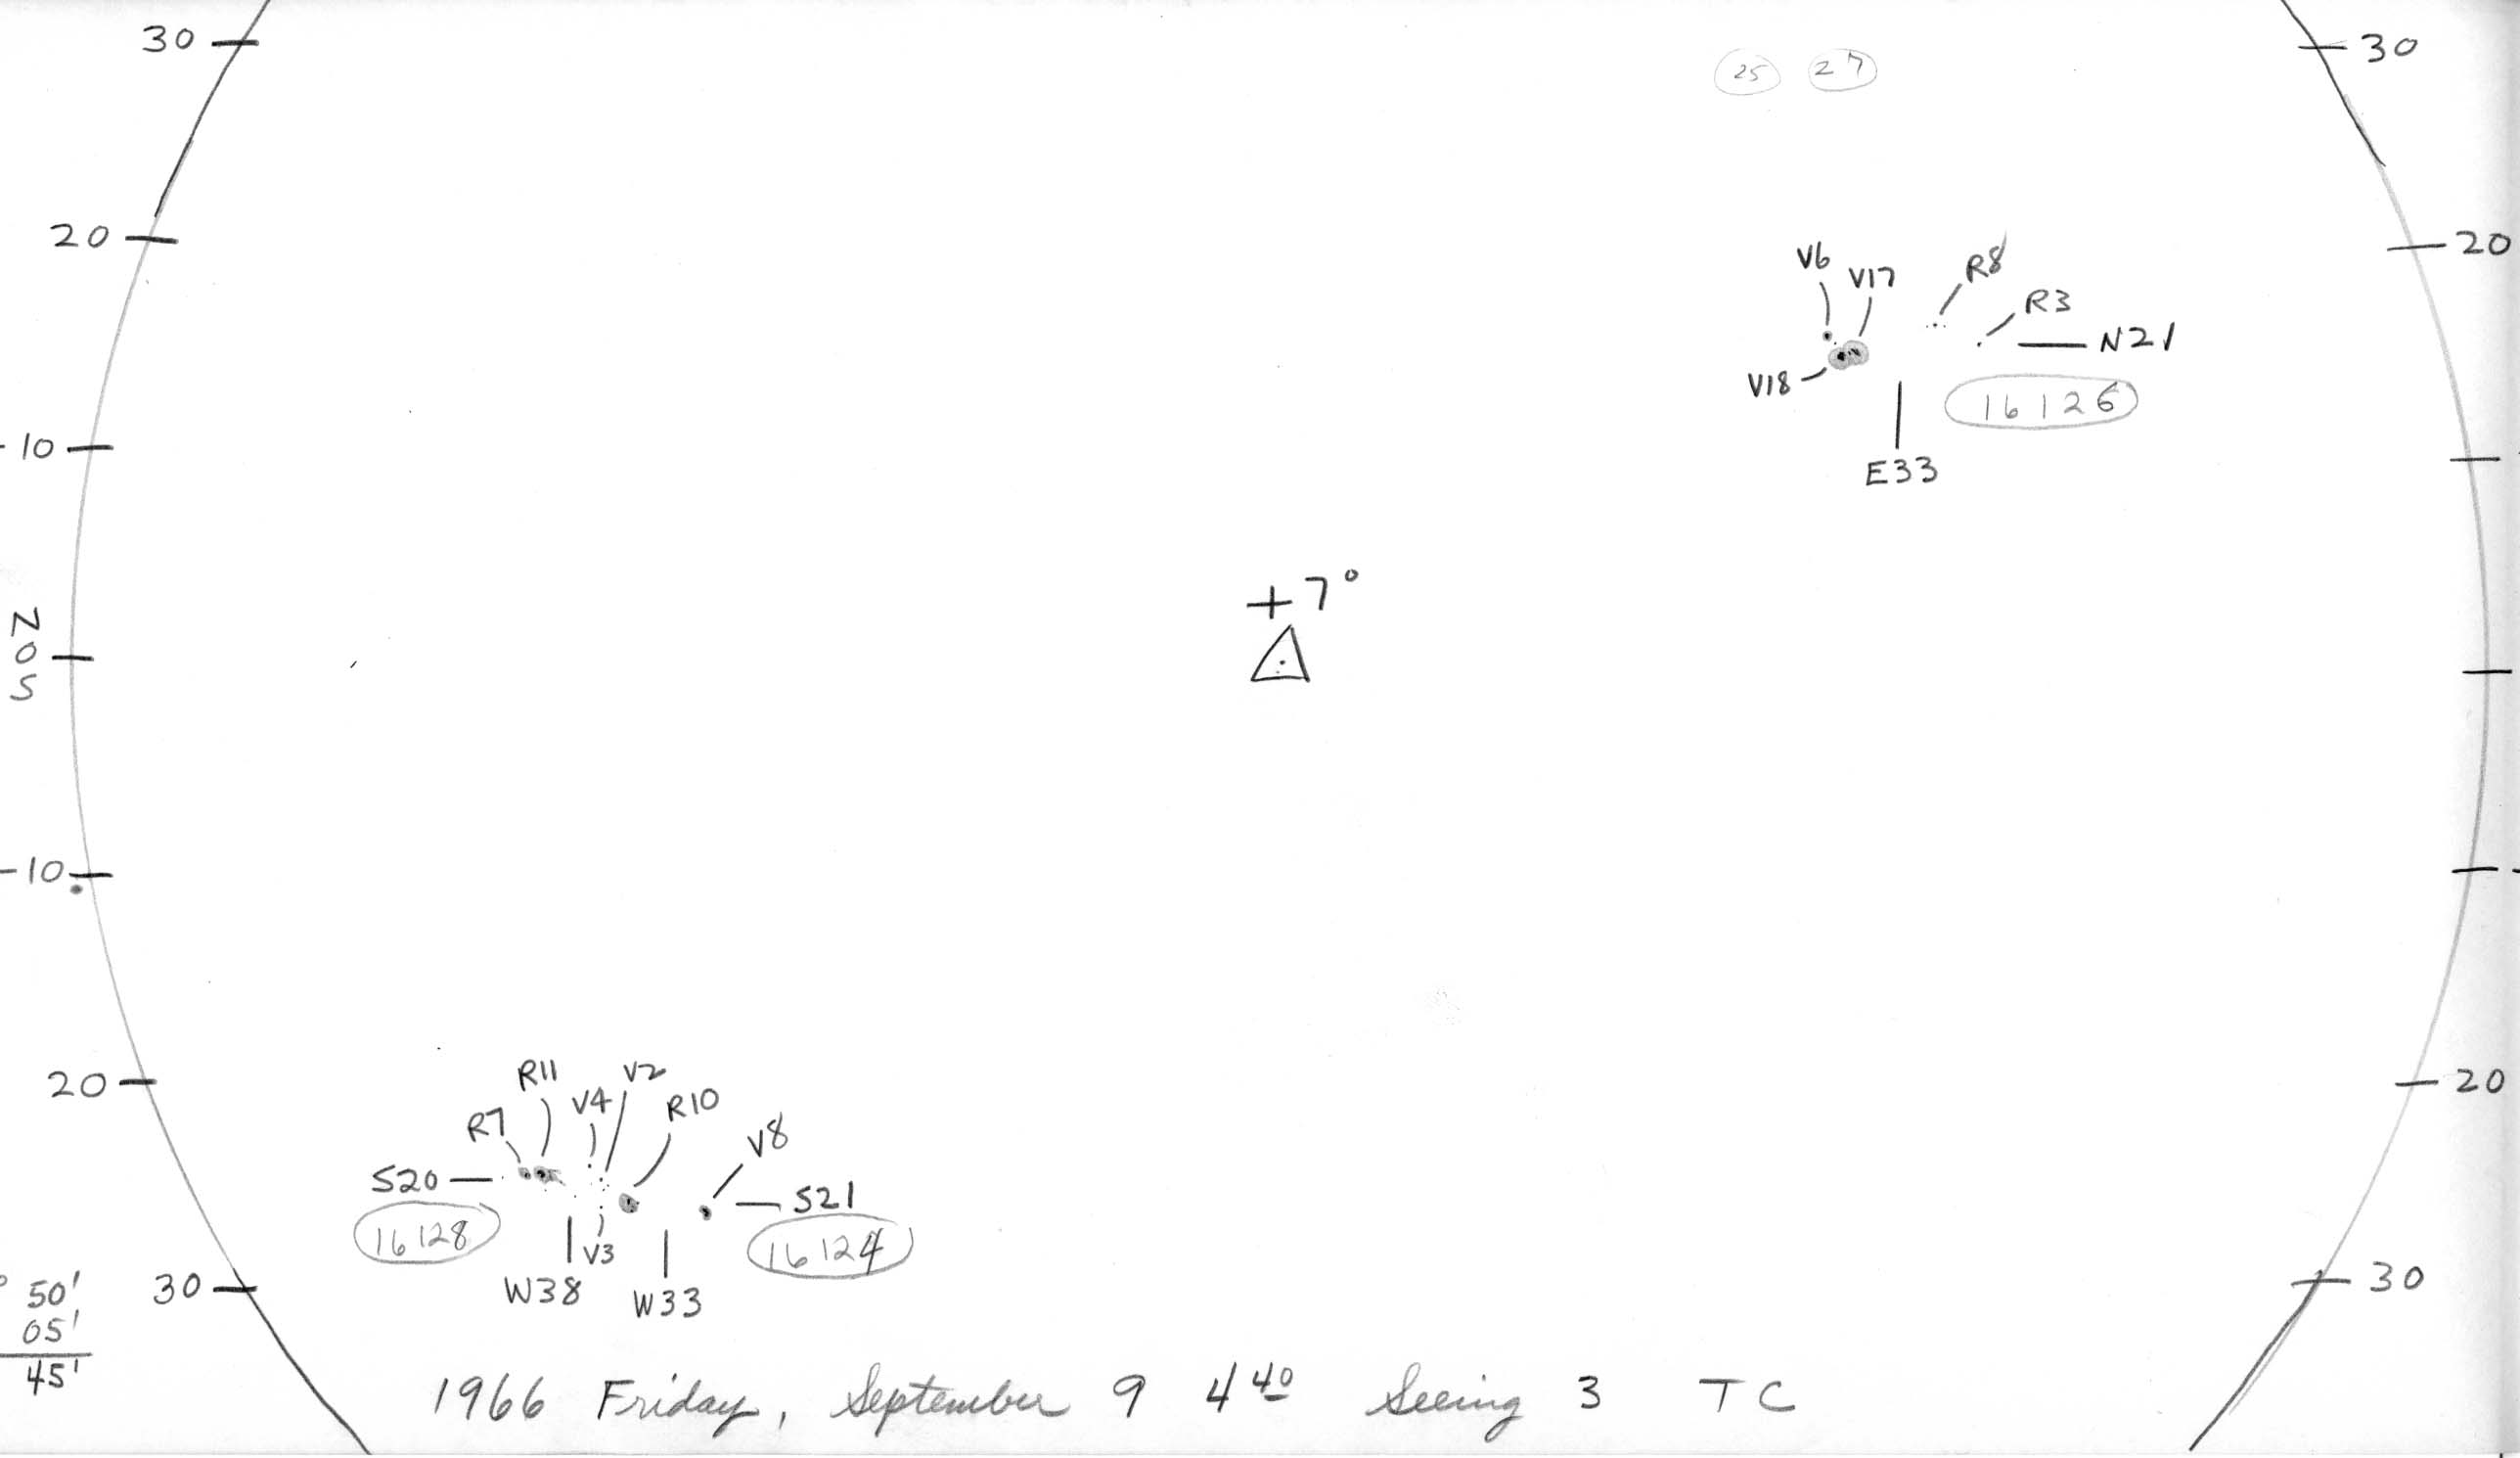 30 30
25 27
20 20
V6 V17 R8
R3
N21
V18
16126
-10
E33
+7°
N
0
S
-10
20 20
R11 V4 V2 R10
R7 V8
S20 S21
16128 V3 16124
W38 W33
30 30
50'
05'
45'
1966 Friday, September 9 4 40 Seeing 3 TC